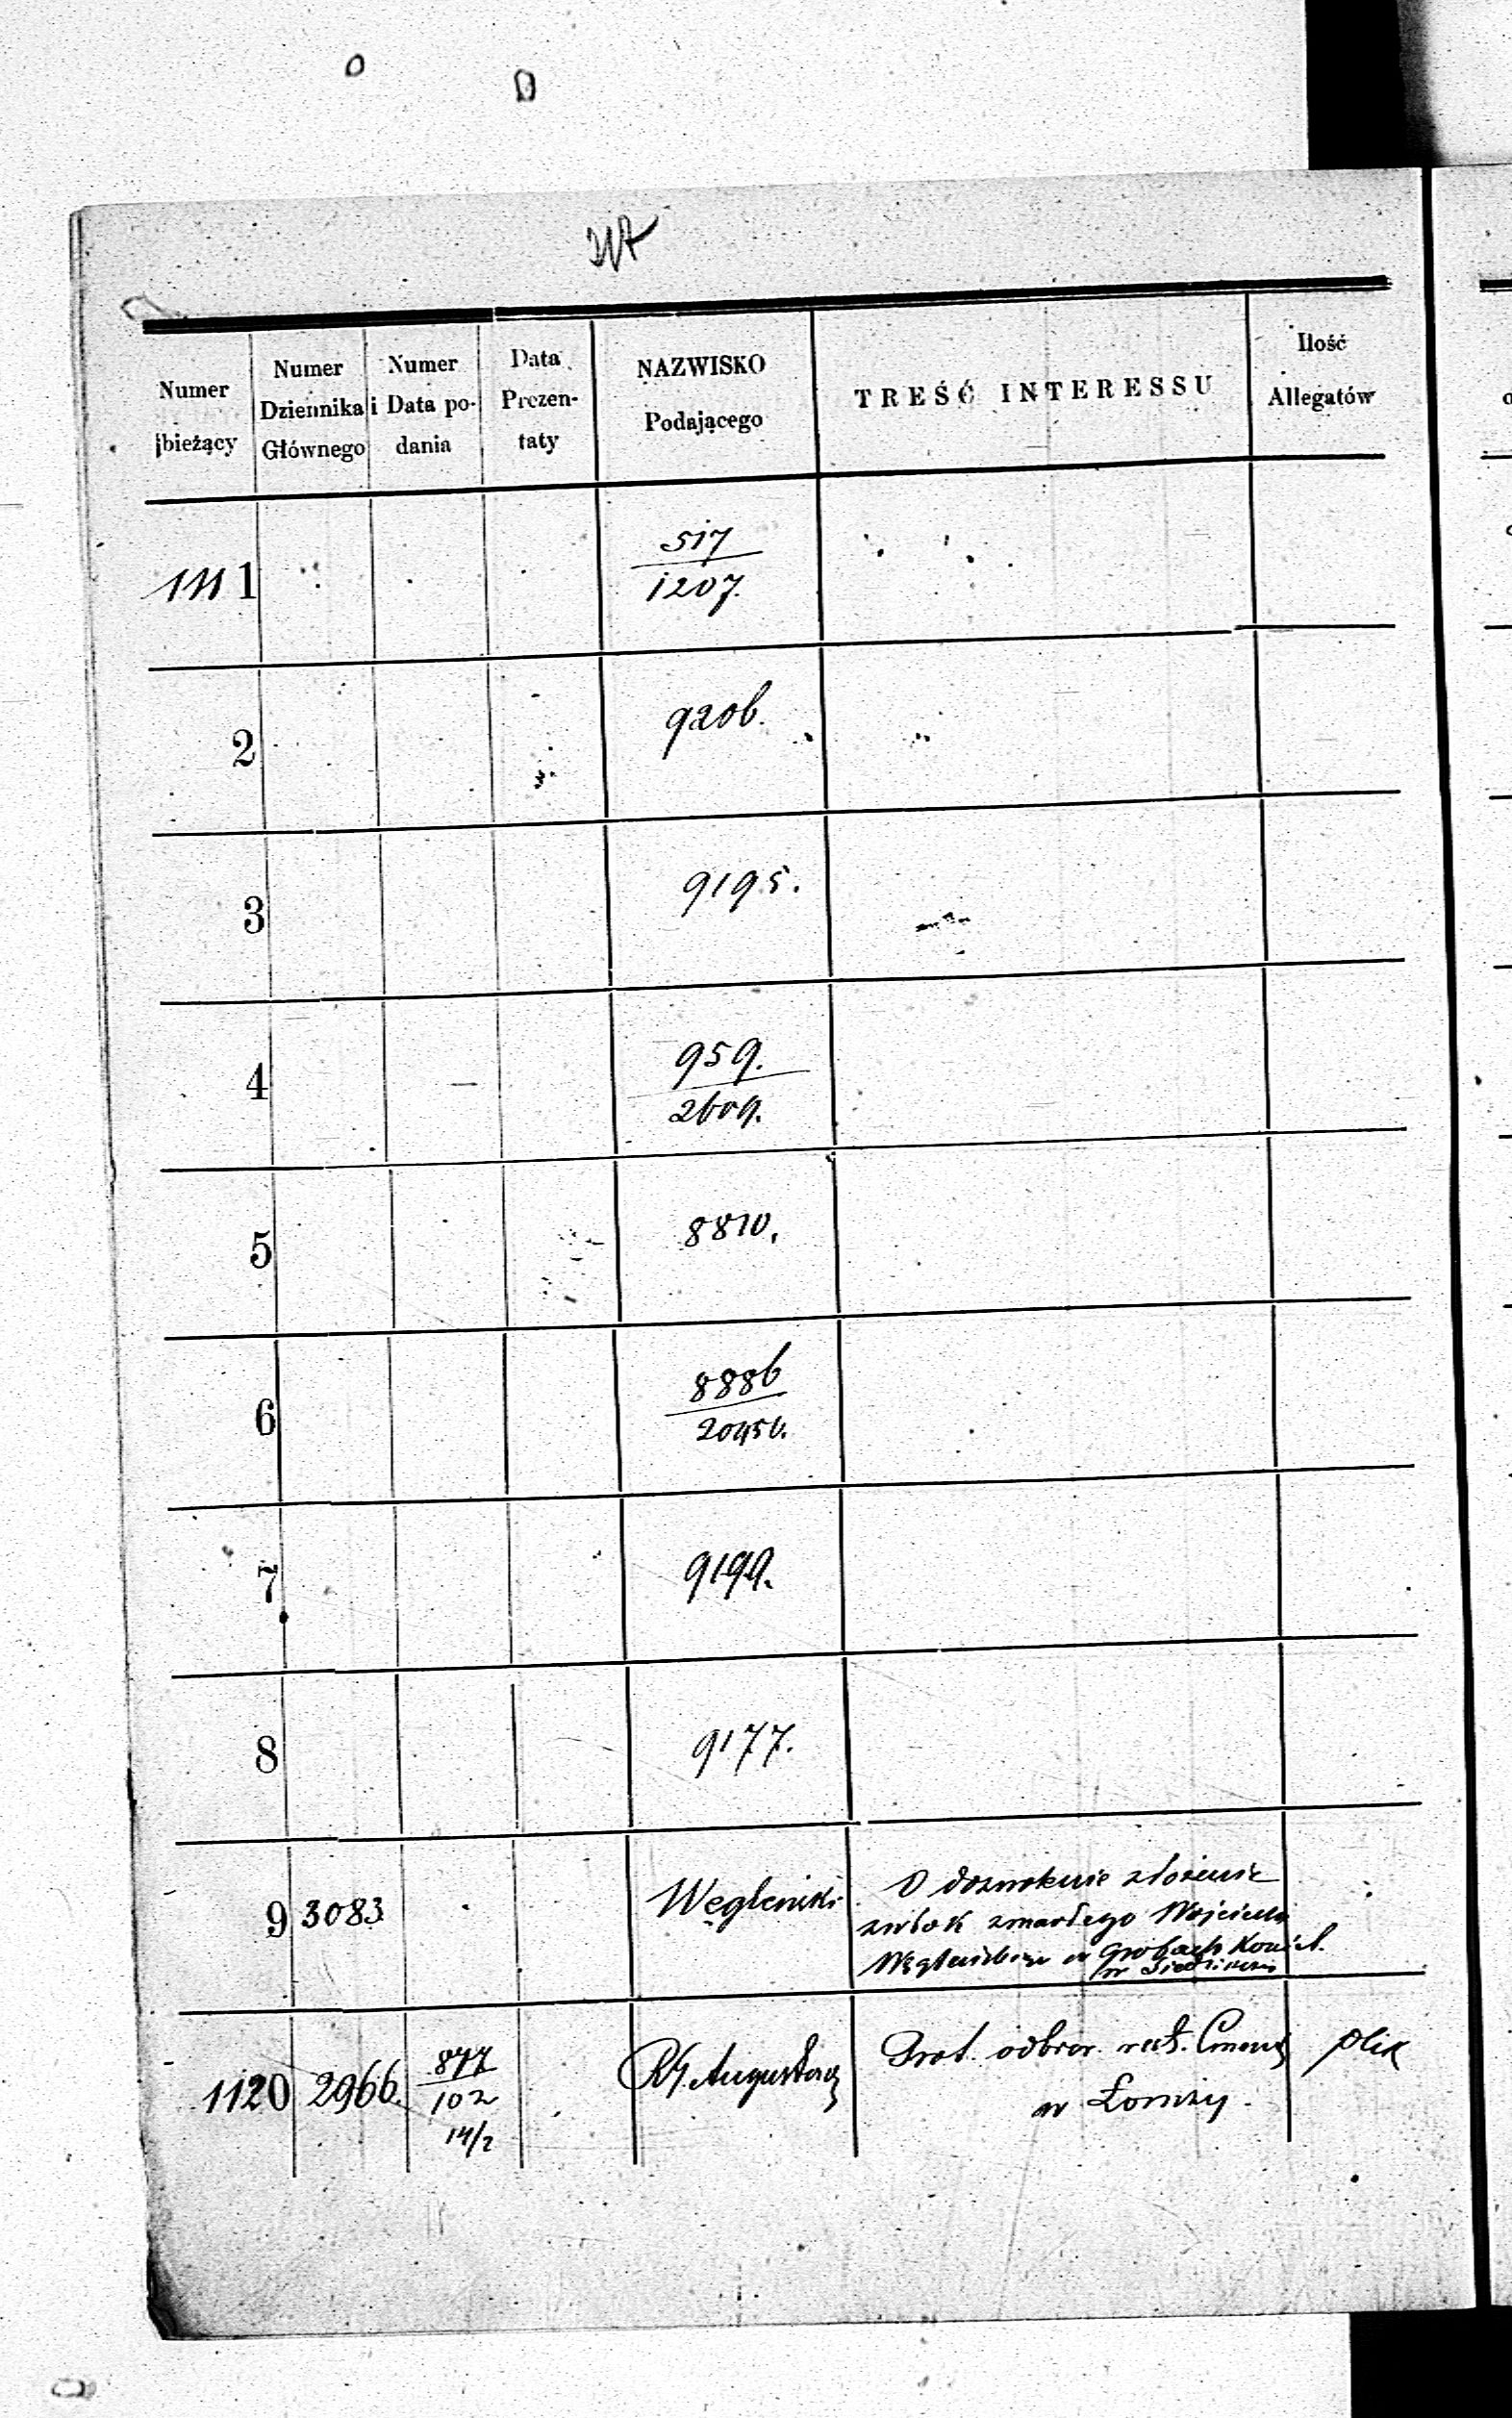 Numer bieżący
Numer Dziennika Głównego
Numer i Data podania
Data Prezentaty
NAZWISKO Podającego
TREŚĆ INTERESSU
Ilość Allegatów
1111
517
1207.
2
9206.
3
9195.
4
959.
2609.
5
8810.
6
8886
20956.
7
9199.
8
9177.
9 3083 Węgleński O dozwolenie złożenia
zwłok zmarłego Wojciecha
w Grobach Kościel.
w
1120 2966. 877
102
14/2
RG Augustow Prot. odbior. Cment
w Łomży. plik